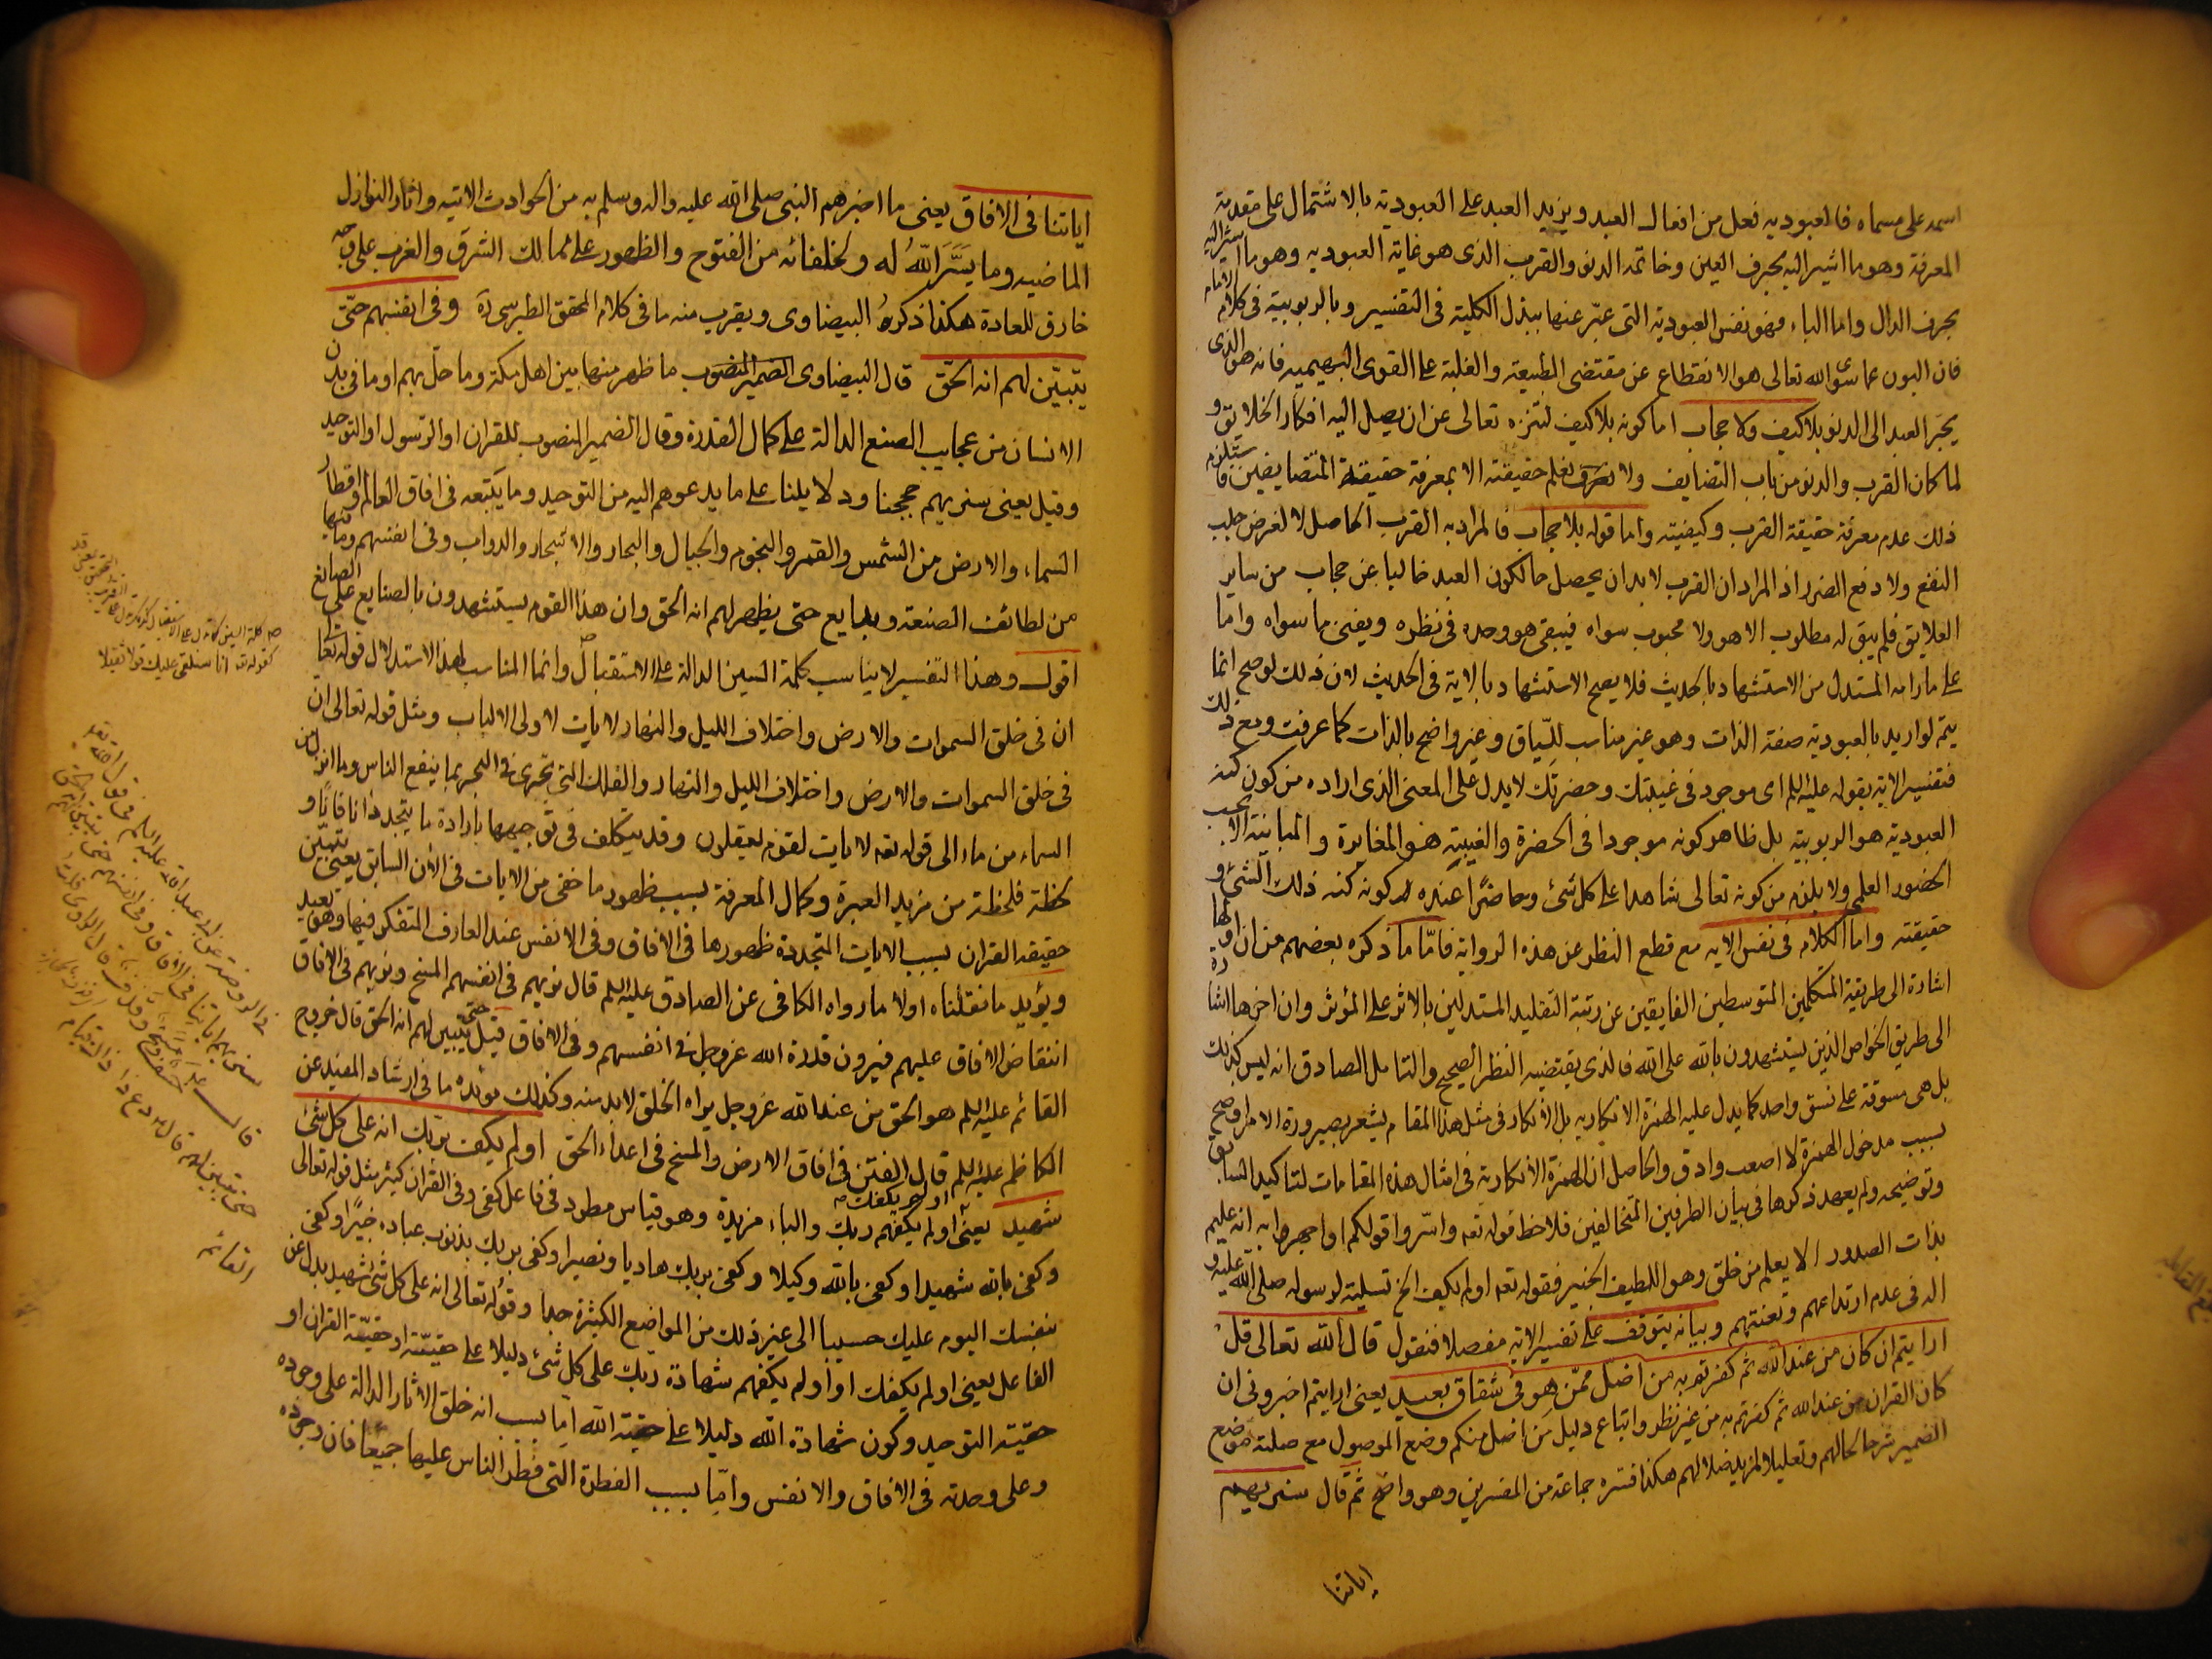 اسمه على مسماه فالعبودية فعل من افعال العبد ويزيد العبد على العبودية بالاشتمال على مقدمة
المعرفة وهو ما اشير اليه بحرف العين وخاتمة الدنو والقرب الذى هو غاية العبودية وهو ما اشير اليه
بحرف الدال واما الباء فهو نفس العبودية التى عبّر عنها ببذل الكلية فى التفسير وبالربوبية فى كلام الامام
فان البون عما سوى الله تعالى هو الانقطاع عن مقتضى الطبيعة والغلبة على القوى البهيمية فانه هو الذى
يجر العبد الى الدنو بلا كيف ولا حجاب اما كونه بلا كيف لتنزه تعالى عن ان يصل اليه افكار الخلايق و
لما كان القرب والدنو من باب التضايف ولا تعرف تعلم حقيقته الا بمعرفة حقيقة المتضايفين فاستلزم
ذلك عدم معرفة حقيقة القرب وكيفيته واما قوله بلا حجاب فالمراد به القرب الحاصل لا لغرض جلب
النفع ولا دفع الضر اذ المراد ان القرب لا بد ان يحصل حالكون العبد خاليا عن حجاب من ساير
العلايق فلم يبق له مطلوب الا هو ولا محبوب سواه فيبقى هو وحده فى نظره ويفنى ما سواه واما
على مارامه المستدل من الاستشهاد بالحديث فلا يصح الاستشهاد بالاية فى الحديث لان ذلك لو صح انما
يتم لو اريد بالعبودية صفة الذات وهو غير مناسب للسّياق وغير واضح بالذات كما عرفت ومع ذلك
فتفسير الاية بقوله عليه السلم اى موجود فى غيبتك وحضرتك لا يدل على المعنى الذى اراده من كون كنه
العبودية هو الربوبية بل ظاهر كونه موجودا فى الحضرة والغيبة هو المغايرة والمباينة الا بحسب
الحضور العلمى ولا يلزم من كونه تعالى شاهدا على كل شئ وحاضرًا عنده كونه كنه ذلك الشئ و
حقيقته واما الكلام فى نفس الاية مع قطع النظر عن هذه الرواية فامّا ما ذكره بعضهم من ان اولها
اشارة الى طريقة المتكلمين المتوسطين الفايقين عن رتبة التقليد المستدلين بالاثر على المؤثر وان اخرها اشارة
الى طريق الخواص الذين يستشهدون بالله على الله فالذى يقتضيه النظر الصحيح والتامل الصادق انه ليس كذلك
بل هى مسوقة على نسق واحد كما يدل عليه الهمزة الانكارية بل الانكار فى مثل هذا المقام يشعر بصيرورة الامر اوضح
بسبب مدخول الهمزة لا اصعب وادق والحاصل ان الهمزة الانكارية فى امثال هذه المقامات لتاكيد السابق
وتوضيحه ولم يعهد ذكرها فى بيان الطرفين المتخالفين فلاحظ قوله تعه واسّروا قولكم او اجهروا به انه عليم
بذات الصدور الا يعلم من خلق وهو اللطيف الخبير فقوله تعه اولم يكف الخ تسلية لرسوله صلى الله عليه و
اله فى عدم ارتداعهم وتعنتهم وبيانه يتوقف على تفسير الاية مفصلا فنقول قال الله تعالى قل
ارايتم ان كان من عند الله ثم كفرتم به من اضل ممّن هو فى شقاق بعيد يعنى ارايتم اخبرونى ان
كان القران من عند الله ثم كفرتم به من غير نظر واتباع دليل من اضل منكم وضع الموصول مع صلته موضع
الضمير شرحا لحالهم وتعليلا لمزيد ضلالهم هكذا فسّره جماعة من المفسرين وهو واضح ثم قال سنريهم
اياتنا
اياتنا فى الافاق يعنى ما اخبرهم النبى صلى الله عليه واله وسلم به من الحوادث الاتيه واثار النوازل
الماضيه وما يسَّرَ اللهُ له ولخلفائه من الفتوح والظهور على ممالك الشرق والغرب على وجه
خارق للعادة هكذا ذكرهُ البيضاوى ويقرب منه ما فى كلام المحقق الطبرسى ره وفى انفسهم حتّى
يتبيّن لهم انه الحقّ قال البيضاوى الضمير المنصوب ما ظهر منها بين اهل مكة وما حلّ بهم او ما فى بدن
الانسان من عجايب الصنع الدالة على كمال القدرة وقال الضمير المنصوب للقران او الرسول او التوحيد
وقيل يعنى سنريهم حججنا ودلايلنا على ما يدعوهم اليه من التوحيد وما يتبعه فى افاق العالم واقطار
السماء والارض من الشمس والقمر والنجوم والجبال والبحار والاشجار والدواب وفى انفسهم وما فيها
من لطائف الصنعة وبدايع حتى يظهر لهم انه الحق وان هذا القوم يستشهدون بالصنايع على الصانع
اقول وهذا التفسير لا يناسب كلمة السين الدالة على الاستقبال وانما المناسب لهذا الاستدلال قوله تعا
ان فى خلق السموات والارض واختلاف الليل والنهار لايات لاولى الالباب ومثل قوله تعالى ان
فى خلق السموات والارض واختلاف الليل والنهار والفلك التى تجرى فى البحر بما ينفع الناس وما انزل من
السماء من ماء الى قوله تعه لايات لقوم يعقلون وقد يتكلف فى توجيهها بارادة ما يتجدد انا فانًا و
لحظة فلحظة من مزيد العبرة وكمال المعرفة بسبب ظهور ما خفى من الايات فى الان السابق يعنى يتبيّن
حقيقة القران بسبب الايات المتجددة ظهورها فى الافاق وفى الانفس عند العارف المتفكر فيها وهو بعيد
ويؤيد ما نقلناه اولا ما رواه الكافى عن الصادق عليه السلم قال نريهم فى انفسهم المسخ ونريهم فى الافاق
انتقاض الافاق عليهم فيرون قدرة الله عز وجل فى انفسهم وفى الافاق قيل حتى يتبين لهم انه الحق قال خروج
القائم عليه السلم هو الحق من عند الله عز وجل يراه الخلق لا بد منه وكذلك يؤيده ما فى ارشاد المفيد عن
الكاظم عليه السلم قال الفتن فى افاق الارض والمسخ فى اعداء الحق اولم يكف بربك انه على كل شئ
شهيد يعنى اولم يكفهم ربك والباء مزيدة وهو قياس مطرد فى فاعل كفى وفى القران كثير مثل قوله تعالى
اولم يكفك
وكفى بالله شهيدا وكفى بالله وكيلا وكفى بربك هاديا ونصيرا وكفى بربك بذنوب عباده خبيرًا وكفى
بنفسك اليوم عليك حسيبا الى غير ذلك من المواضع الكثيرة جدا وقوله تعالى انه على كل شئ شهيد بدل عن
الفاعل يعنى اولم يكفك او اولم يكفهم شهادة ربك على كل شئ دليلا على حقيّته او حقيّة القران او
حقية التوحيد وكون شهادة الله دليلا على حقية الله امّا بسبب انه خلق الاثار الدالة على وجوده
وعلى وحدته فى الافاق والانفس وامّا بسبب الفطرة التى فطر الناس عليها جميعًا فان وجوده
كقوله تعه انا سنلقى عليك قولا ثقيلا
فى الروضة عن ابى عبد الله عليه السلم فى قول الله تعه
سنريهم اياتنا فى الافاق وفى انفسهم حتى يتبين لهم انه الحق
حتى يتبين لهم قال دع ذا ذاك قيام
القائم